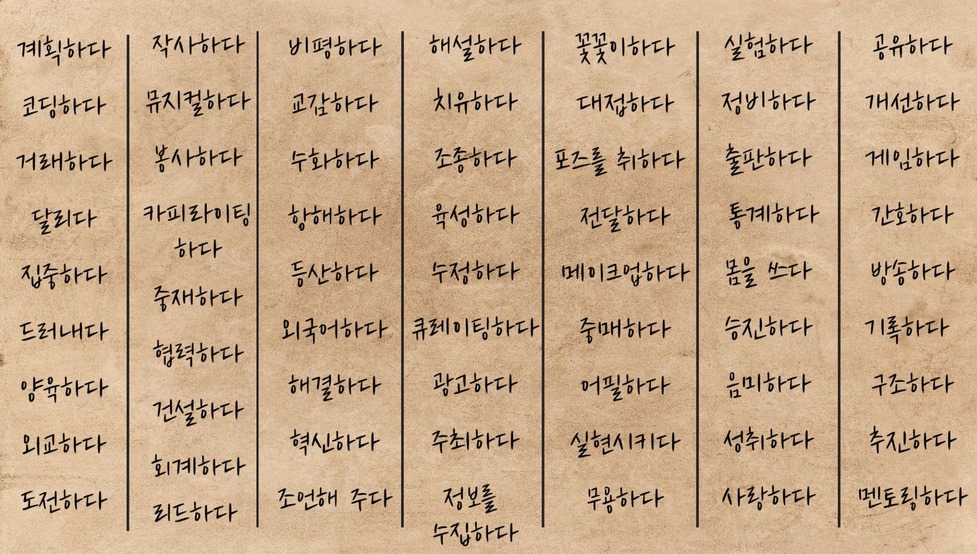 계획하다
코딩하다
거래하다
달리다
집중하다
드러내다
양육하다
외교하다
도전하다
작사하다
뮤지컬하다
봉사하다
카피라이팅
하다
중재하다
협력하다
건설하다
회계하다
리드하다
비평하다
교감하다
수화하다
항해하다
등산하다
외국어하다
해결하다
혁신하다
조언해 주다
해설하다
치유하다
조종하다
육성하다
수정하다
큐레이팅하다
광고하다
주최하다
정보를
수집하다
꽃꽂이하다
대접하다
포즈를 취하다
전달하다
메이크업하다
중매하다
어필하다
실현시키다
무용하다
실험하다
정비하다
출판하다
통계하다
몸을 쓰다
승진하다
음미하다
성취하다
사랑하다
공유하다
개선하다
게임하다
간호하다
방송하다
기록하다
구조하다
추진하다
멘토링하다